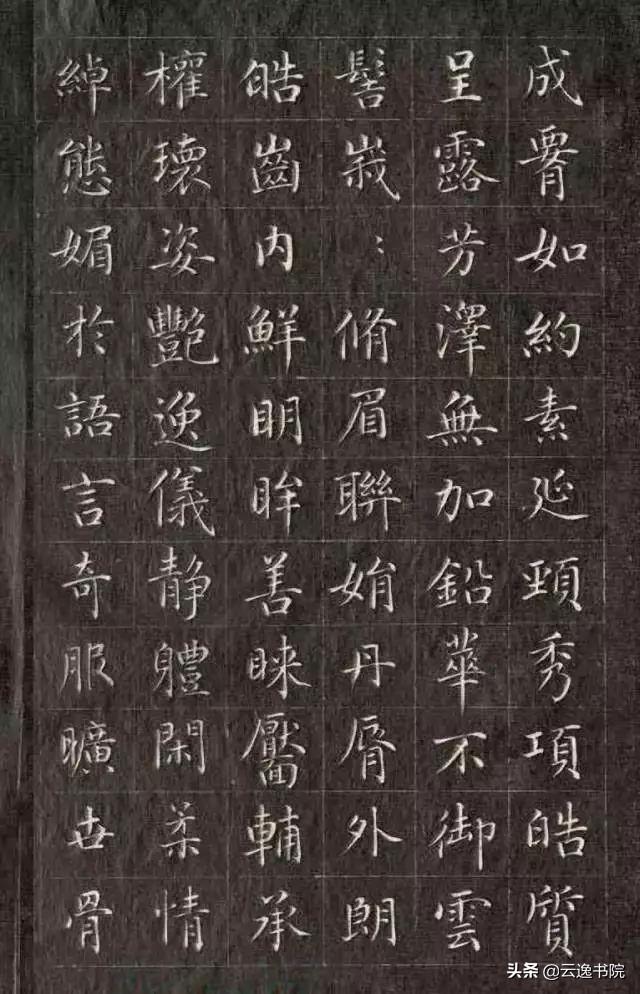 成腰如約素延頸秀項皓質
呈露芳澤無加鉛華不御雲
髻峩〻脩眉聯娟丹脣外朗
皓齒内鮮明眸善睞靨輔承
權瓌姿豔逸儀靜軆閑柔情
綽態媚於語言奇服曠世骨
头条 @云逸书院